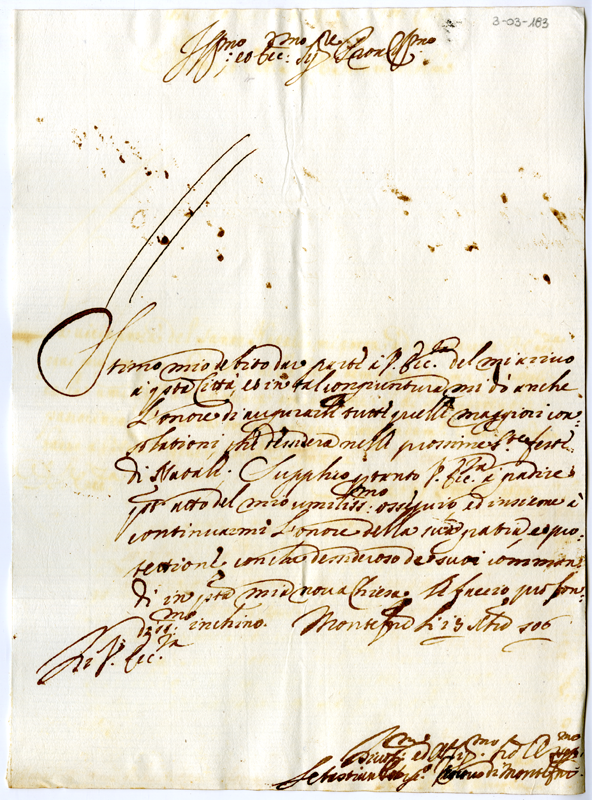 3-03-183
Ill.mo ed Ecc.mo Sig.re Pron Col.mo
Stimo mio debito dar parte à V. Ecc.za del mi arrivo
a q.sta Città, ed in tal congiuntura mi dò anche
l'onore di augurarle tutte quelle maggiori con=
solationi che desidera nelle prossime S.te feste
di Natale. Supplico p tanto V. Ecc.za à gradire
q.sto atto del mio umiliss.mo ossequio, ed insieme à
continuarmi l'onore della sua gratia e pro=
tettione, con che desideroso de suoi comman=
di in q.sta mia nova Chiesa le faccio profon=
diss.mo inchino. Montef. li 13 Xbre 706
Di V. Ecc.za
Devot.mo ed Obl.mo
Sebastiano Vescovo di Montef.